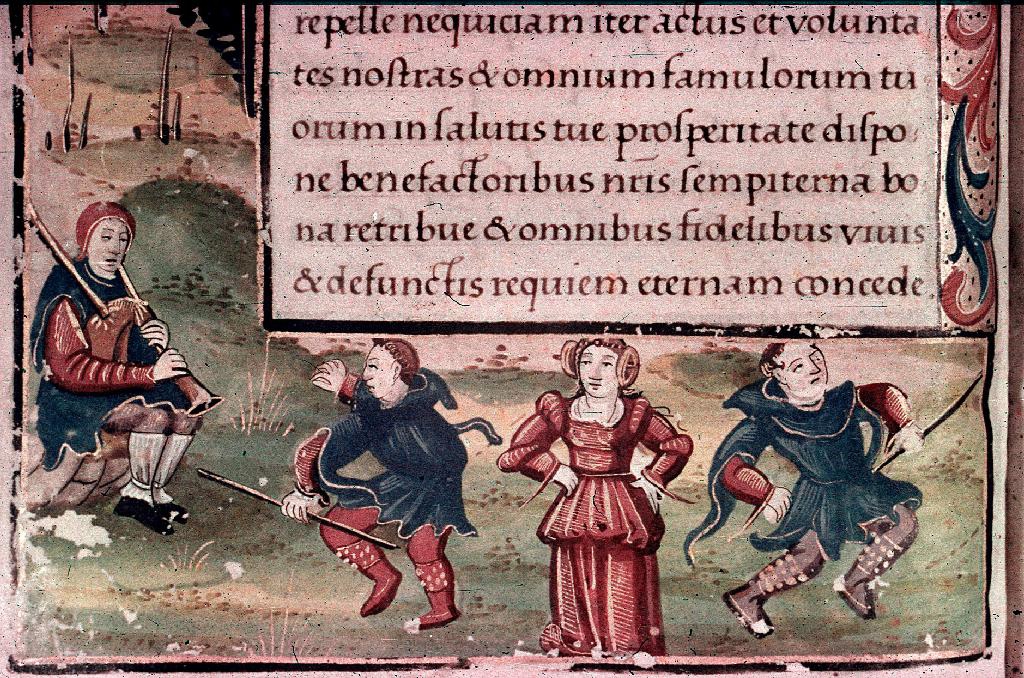 repelle nequiciam iter actus et volunta
tes noſtras & omnium famulorum tu
orum in ſalutis tue proſperitate diſpo
ne benefactoribus nr̄is ſempiterna bo
na retribue & omnibus fidelibus viuis
& defunctis requiem eternam concede